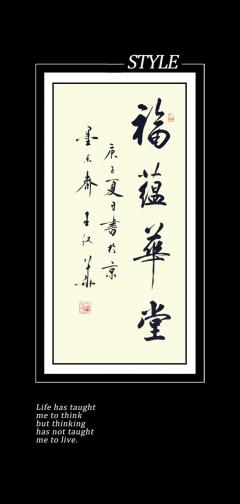 STYLE
福蕴華堂
庚子夏月書於京
墨
齋王汉華
Life has taught
me to think
but thinking
has not taught
me to live.